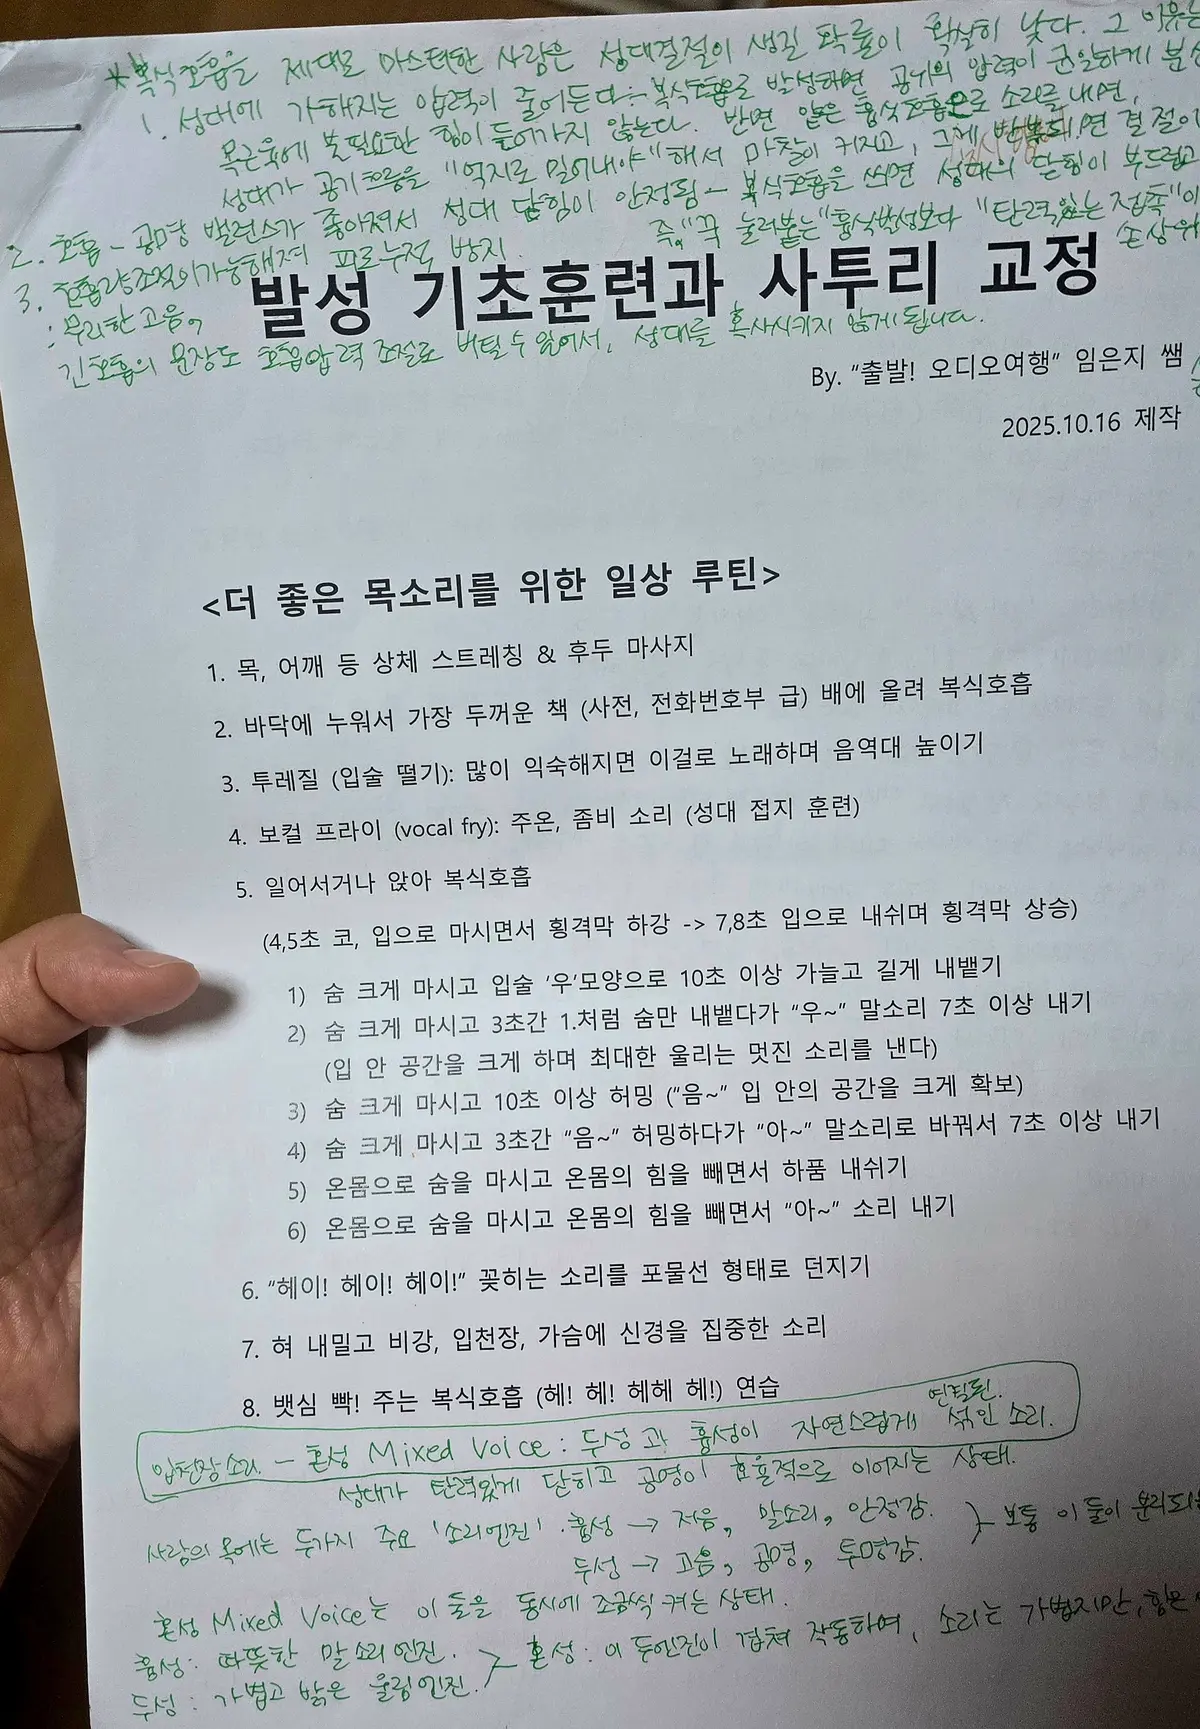 *복식호흡을 제대로 마스터한 사람은 성대결절이 생길 확률이 확실히 낮다. 그 이유는
1. 성대에 가해지는 압력이 줄어든다 - 복식호흡으로 발성하면 공기의 압력이 균일하게 분산
목근육에 불필요한 힘이 들어가지 않는다. 반면 얕은 흉식호흡으로 소리를 내면,
성대가 공기흐름을 "억지로 밀어내야"해서 마찰이 커지고, 그게 반복되면 결절이
2. 호흡 - 공명 밸런스가 좋아져서 성대 닫힘이 안정됨 - 복식호흡을 쓰면 성대의 닫힘이 부드럽고
즉, "꾹 눌러붙는" 흉식발성보다 "탄력있는 접촉"이
3. 호흡량조절이가능해져 피로누적 방지. 손상위
: 무리한 고음,
발성 기초훈련과 사투리 교정
긴호흡의 문장도 호흡압력 조절로 버틸 수 있어서, 성대를 혹사시키지 않게 됩니다.
By. "출발! 오디오여행" 임은지 쌤
2025.10.16 제작
<더 좋은 목소리를 위한 일상 루틴>
1. 목, 어깨 등 상체 스트레칭 & 후두 마사지
2. 바닥에 누워서 가장 두꺼운 책 (사전, 전화번호부 급) 배에 올려 복식호흡
3. 투레질 (입술 떨기): 많이 익숙해지면 이걸로 노래하며 음역대 높이기
4. 보컬 프라이 (vocal fry): 주온, 좀비 소리 (성대 접지 훈련)
5. 일어서거나 앉아 복식호흡
(4,5초 코, 입으로 마시면서 횡격막 하강 -> 7,8초 입으로 내쉬며 횡격막 상승)
1) 숨 크게 마시고 입술 '우'모양으로 10초 이상 가늘고 길게 내뱉기
2) 숨 크게 마시고 3초간 1.처럼 숨만 내뱉다가 "우~" 말소리 7초 이상 내기
(입 안 공간을 크게 하며 최대한 울리는 멋진 소리를 낸다)
3) 숨 크게 마시고 10초 이상 허밍 ("음~" 입 안의 공간을 크게 확보)
4) 숨 크게 마시고 3초간 "음~" 허밍하다가 "아~" 말소리로 바꿔서 7초 이상 내기
5) 온몸으로 숨을 마시고 온몸의 힘을 빼면서 하품 내쉬기
6) 온몸으로 숨을 마시고 온몸의 힘을 빼면서 "아~" 소리 내기
6. "헤이! 헤이! 헤이!" 꽂히는 소리를 포물선 형태로 던지기
7. 혀 내밀고 비강, 입천장, 가슴에 신경을 집중한 소리
8. 뱃심 빡! 주는 복식호흡 (헤! 헤! 헤헤 헤!) 연습
연결된.
입천장소리 - 혼성 Mixed Voice : 두성과 흉성이 자연스럽게 섞인 소리.
성대가 탄력있게 닫히고 공명이 효율적으로 이어지는 상태.
사람의 목에는 두가지 주요 '소리엔진'. 흉성 → 저음, 말소리, 안정감.
두성 → 고음, 공명, 투명감.
보통 이 둘이 분리되
혼성 Mixed Voice는 이 둘을 동시에 조금씩 켜는 상태.
흉성 : 따뜻한 말소리엔진.
두성 : 가볍고 밝은 울림엔진.
혼성 : 이 두엔진이 겹쳐 작동하여, 소리는 가볍지만, 힘은